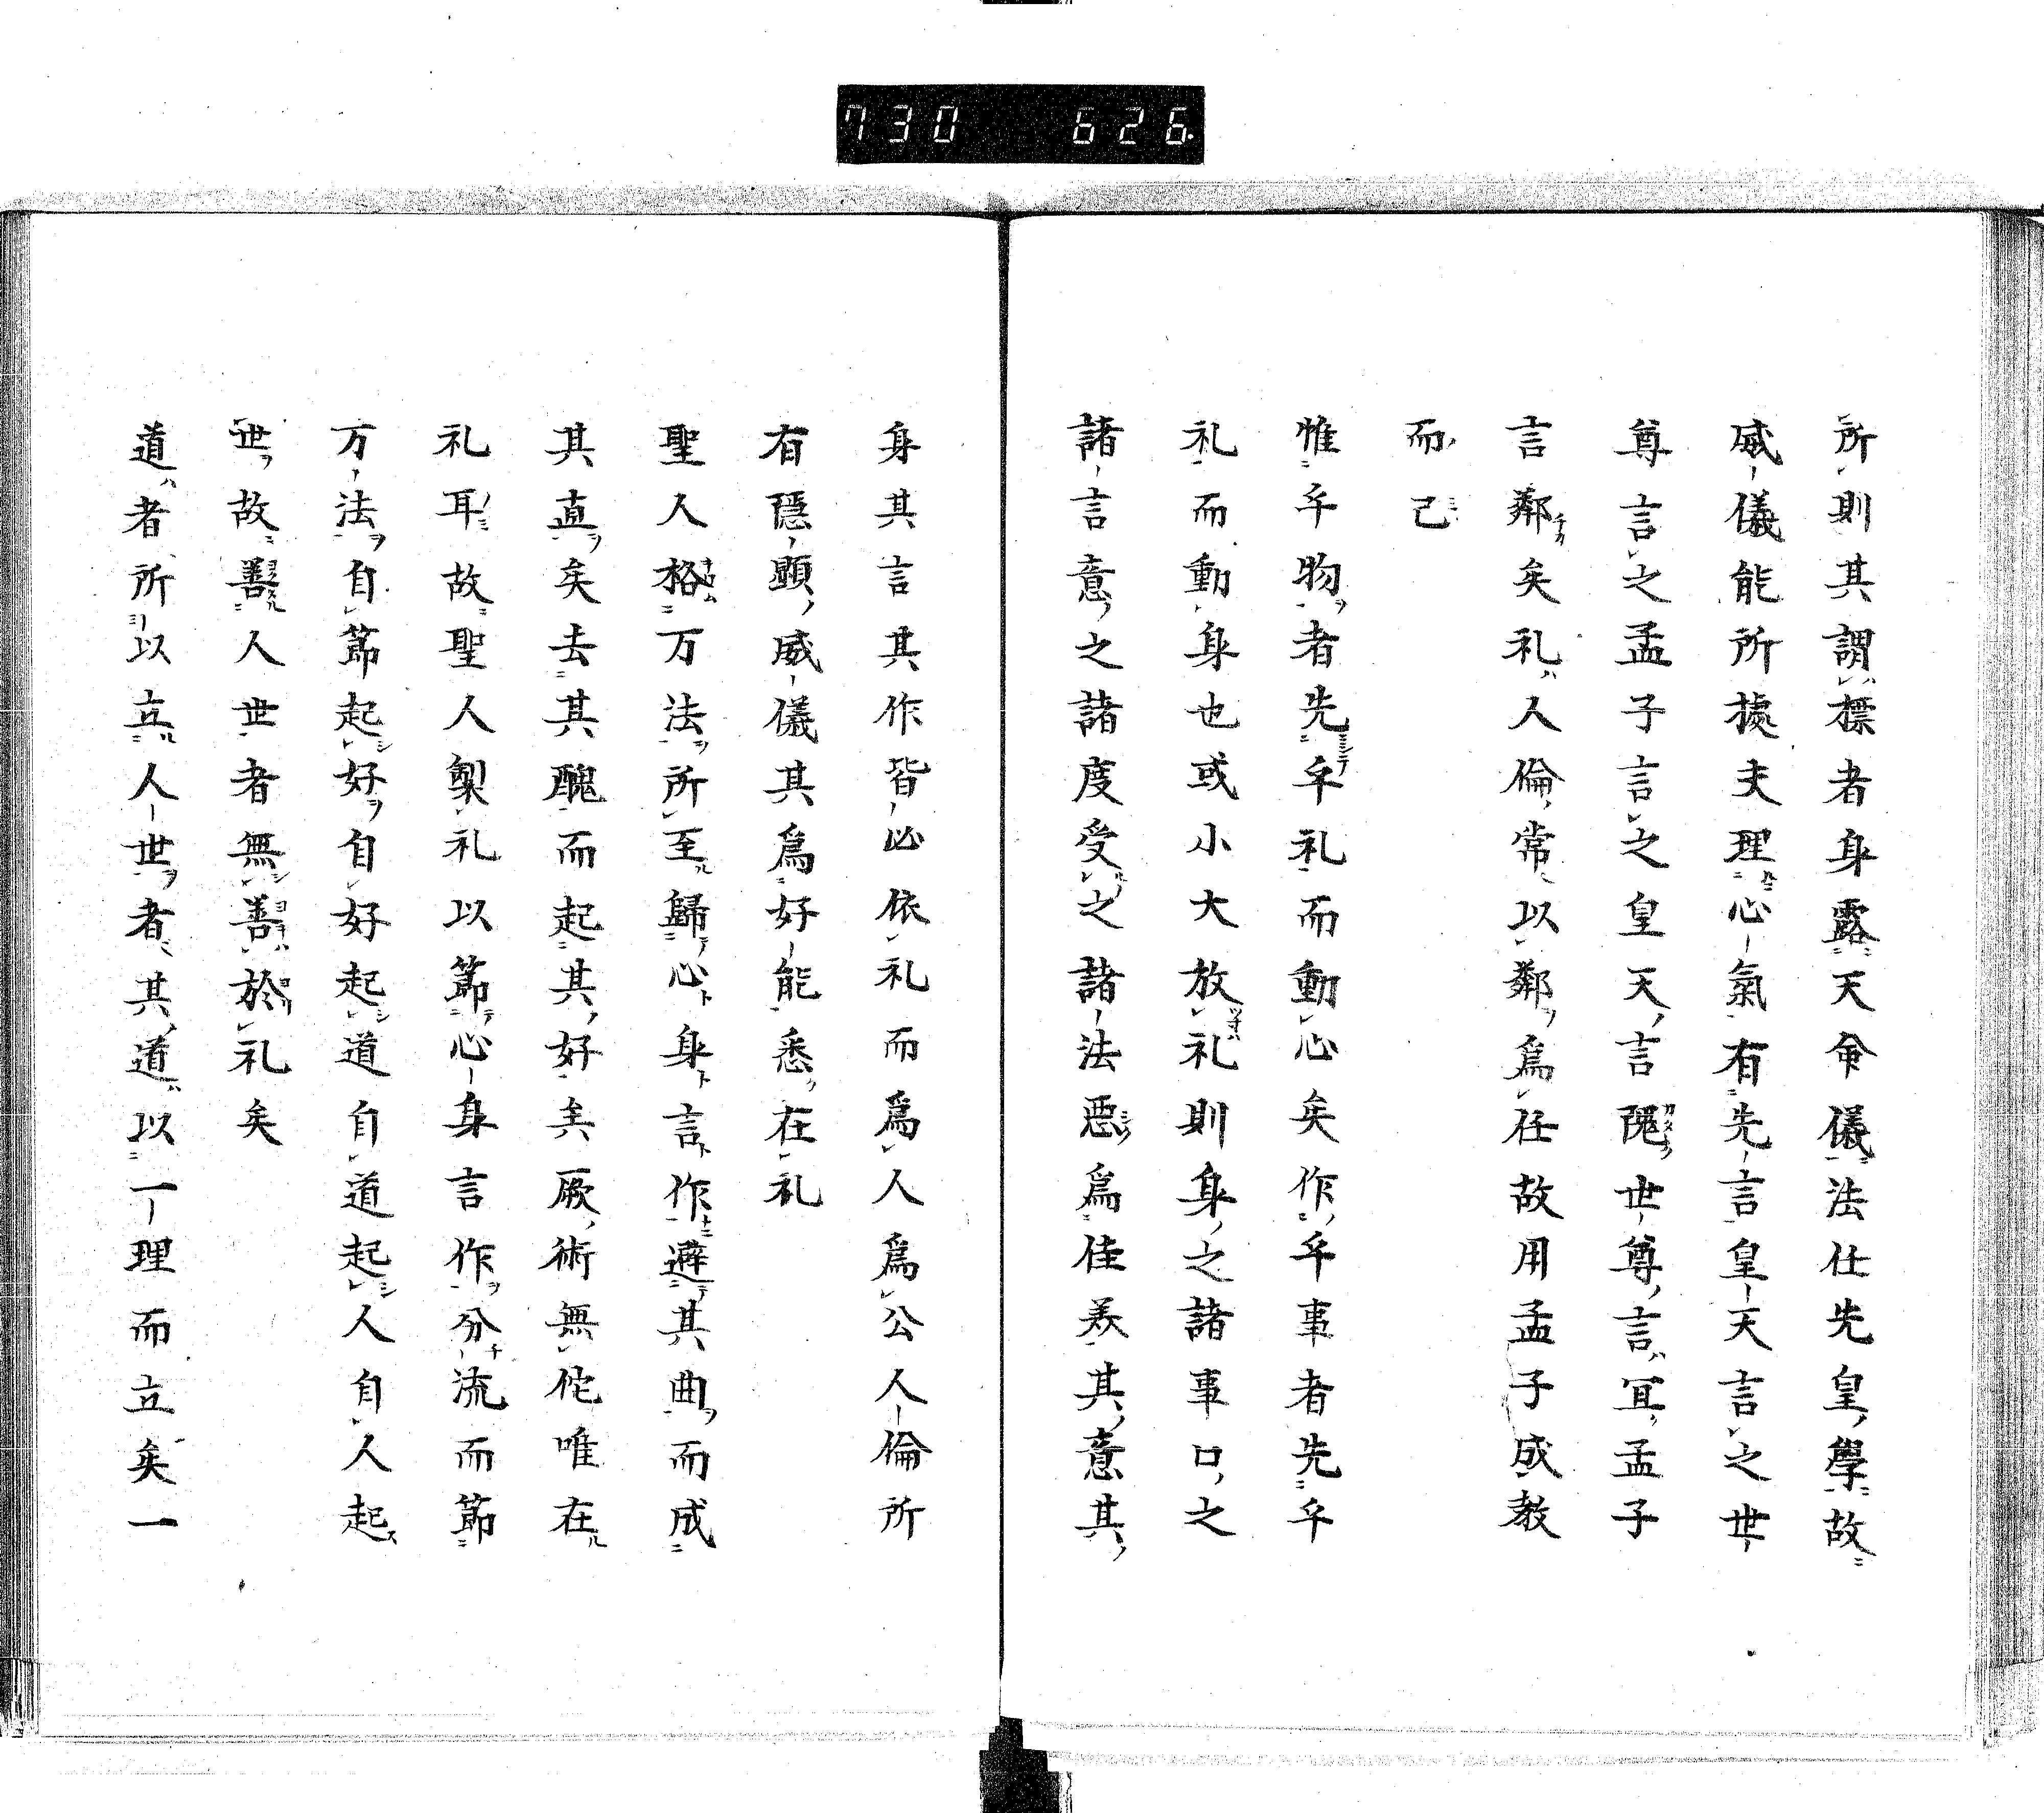 730 626.
所則其謂標者身露天命儀法仕先皇學故
威儀能所㨿夫理心氣有先言皇天言之世
尊言之孟子言之皇天言隗世尊言冝孟子
言鄰矣礼人倫常以鄰爲任故用孟子成教
而已
惟乎物者先乎礼而動心矣作乎事者先乎
礼而動身也或小大放礼則身之諸事口之
諸言意之諸度受之諸法惡爲佳羙其意其
身其言其作皆必依礼而爲人爲公人倫所
有隱顕威儀其爲好能悉在礼
聖人格万法所至歸心身言作避其曲而成
其直矣去其醜而起其好矣厥術無佗唯在
礼耳故聖人製礼以節心身言作分流而節
万法自節起好自好起道自道起人自人起
世故善人世者無善於礼矣
道者所以立人世者其道以一理而立矣一